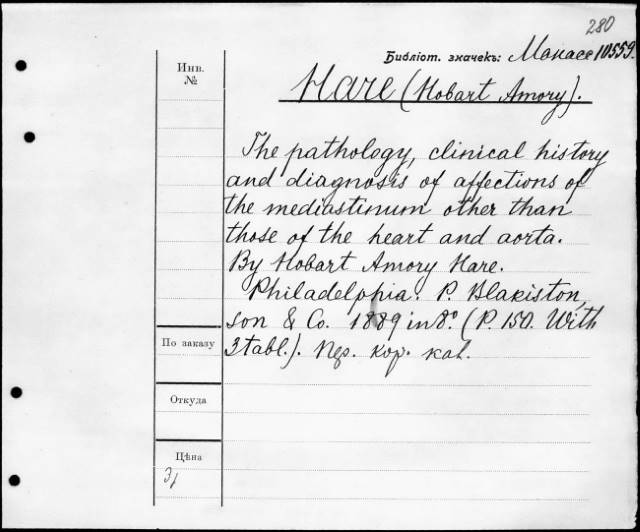 280
Библіот. значекъ: Манасс 10559.
Инв.
№
Hare (Hobart Amory).
The pathology, clinical history
and diagnosis of affections of
the mediastinum other than
those of the heart and aorta.
By Hobart Amory Hare.
Philadelphia. P. Blakiston,
son & Co. 1889 in 8º. (P. 150. With
3 tabl.). кор. каl.
По заказу
Откуда
Цѣна